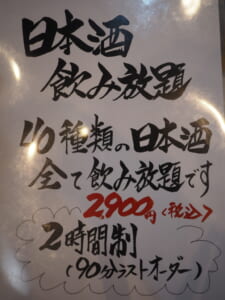 日本酒
飲み放題
40種類の日本酒
全て飲み放題です
2,900円(税込)
2時間制
(90分ラストオーダー)